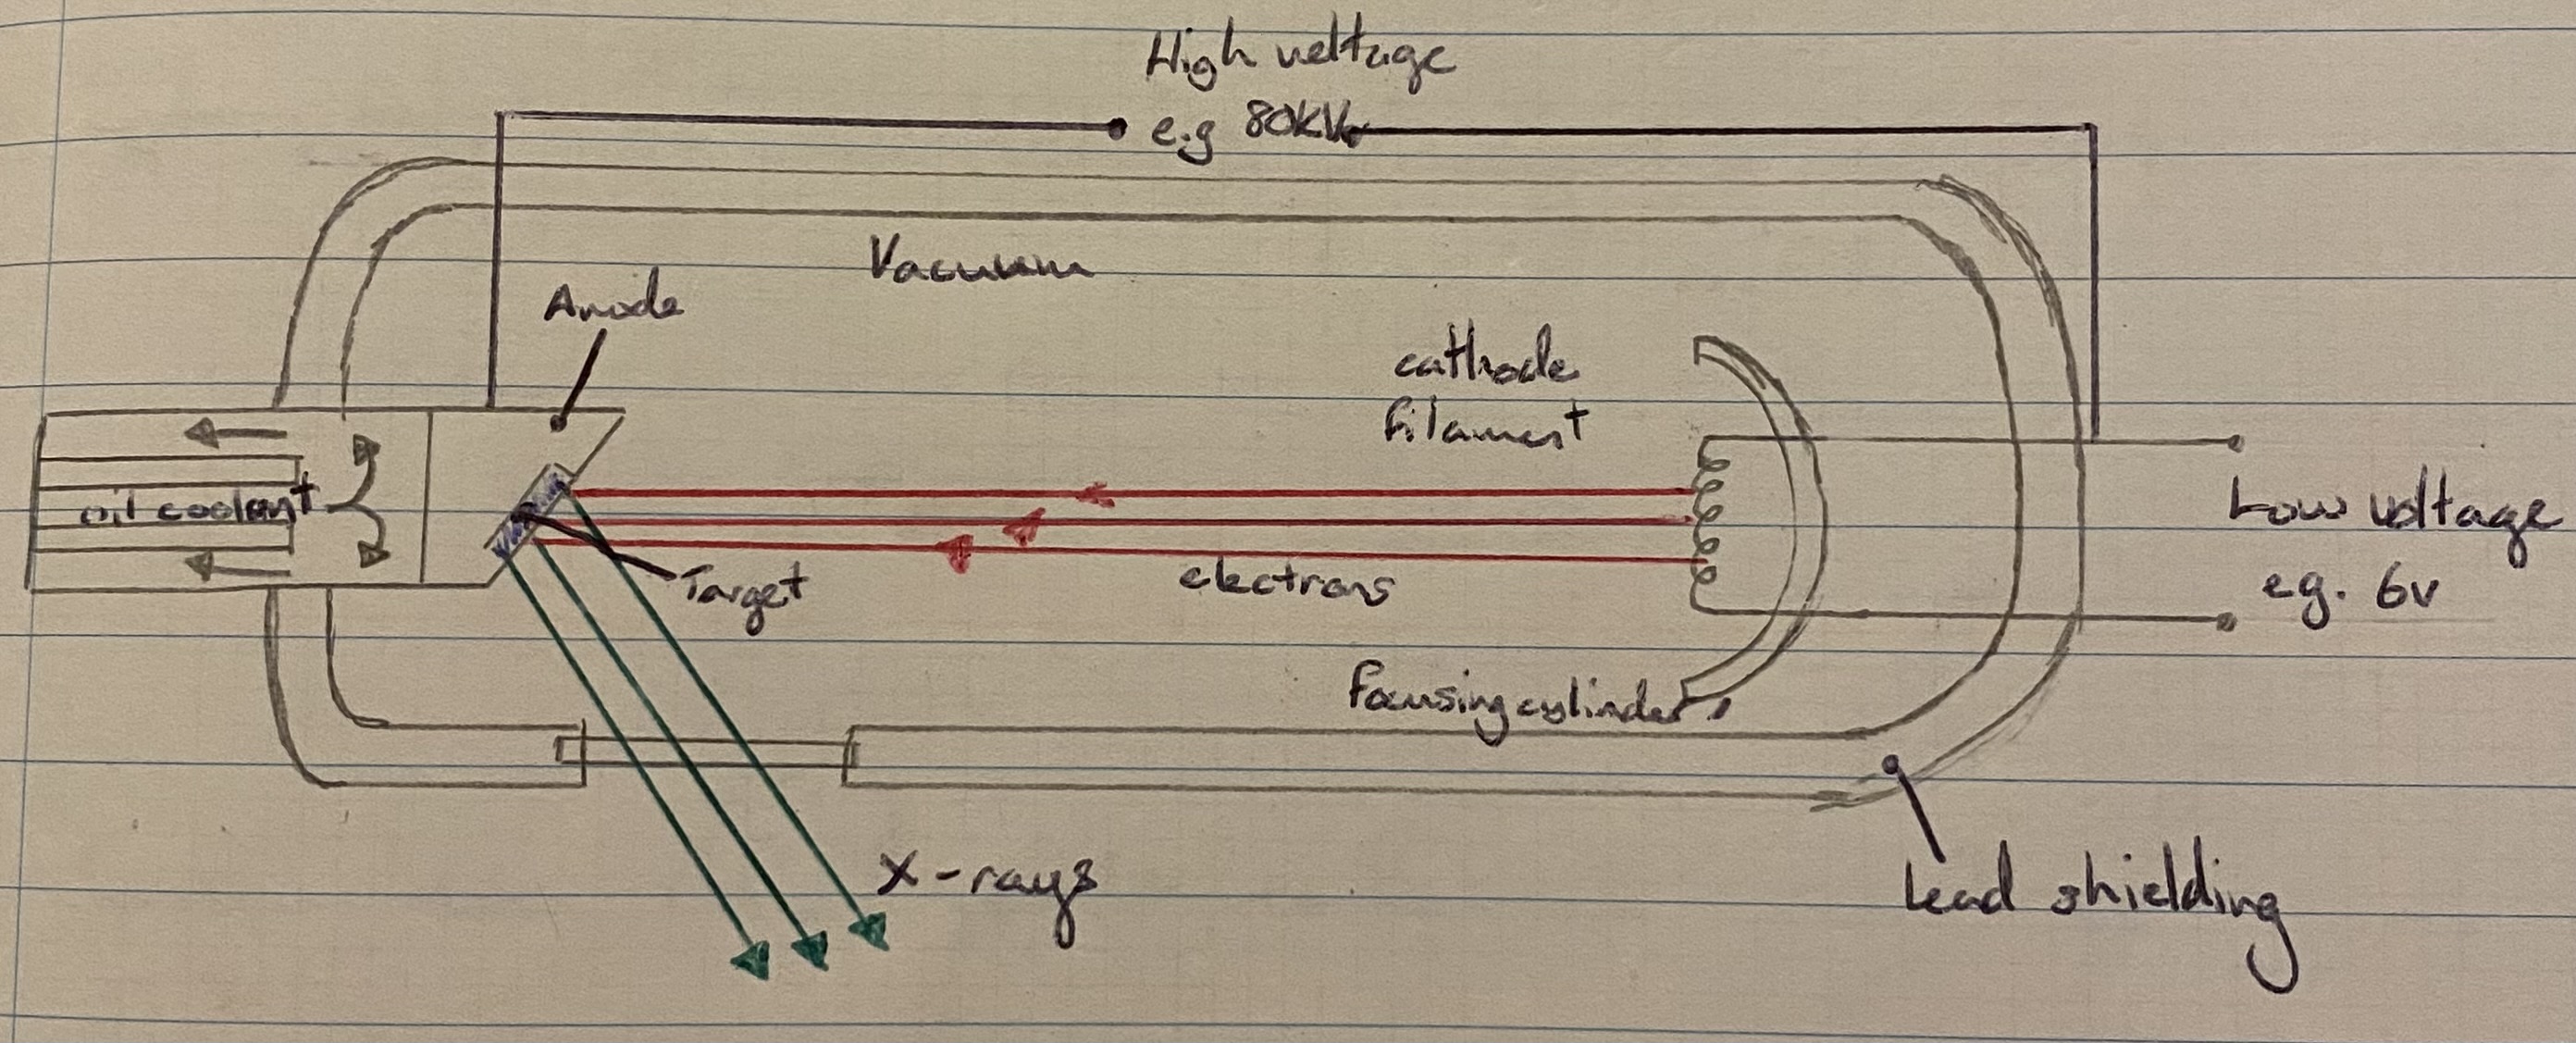 High voltage
e.g 80KV
Vacuum
Anode
cathode
filament
oil coolant
Low voltage
eg. 6v
Target
electrons
Focusing cylinder
X-rays
Lead shielding